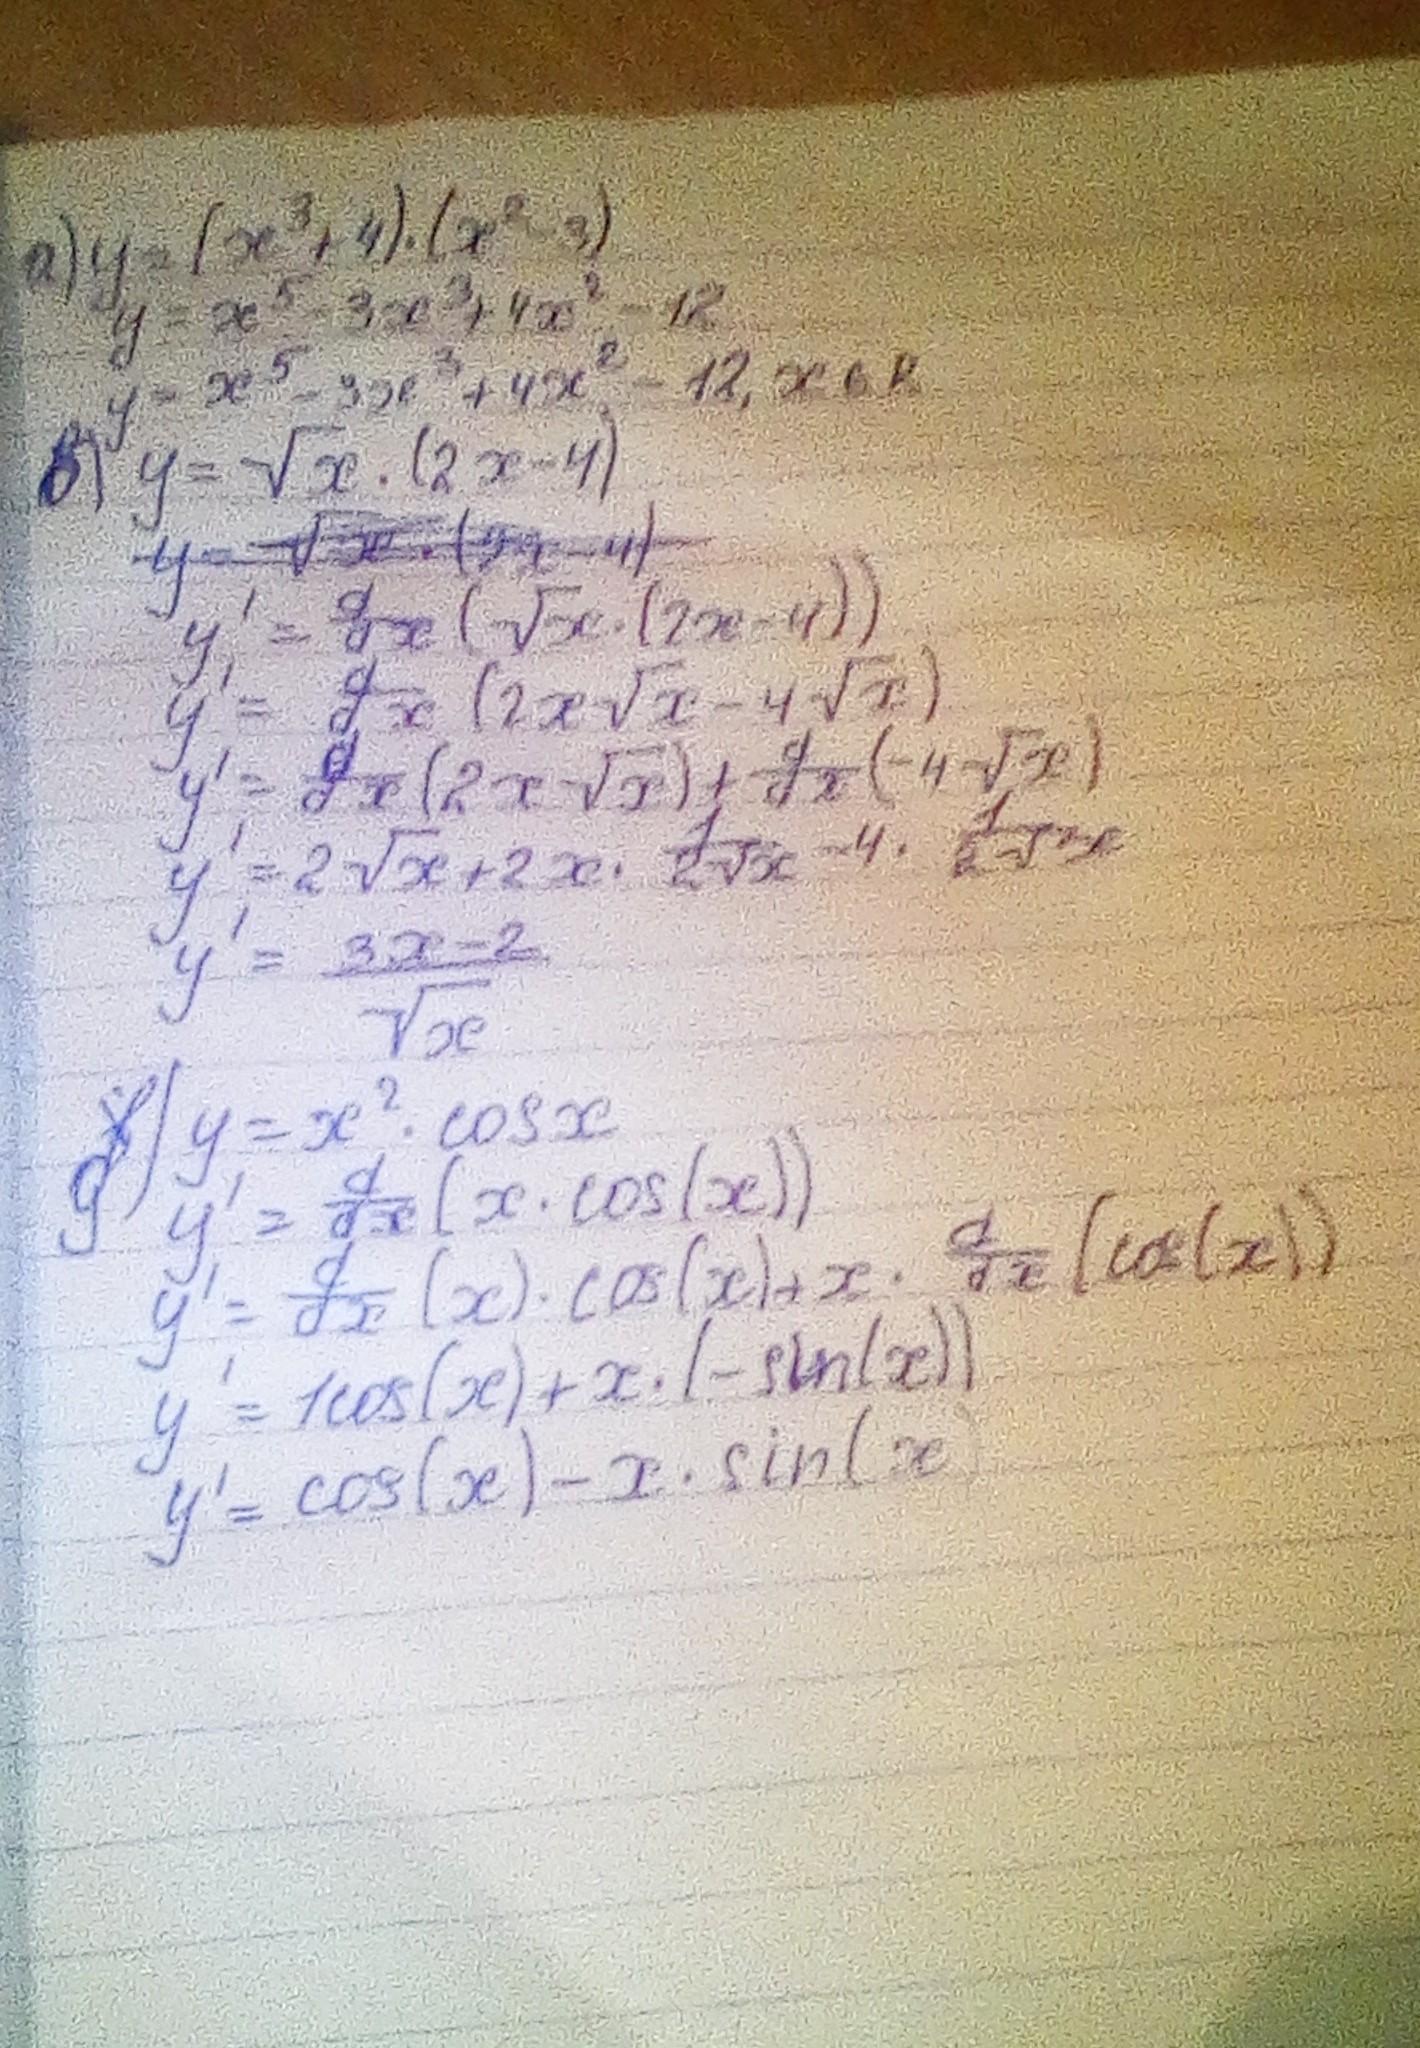 а) y = (x³+4)·(x²-3)
y = x⁵ - 3x³ + 4x² - 12
y = x⁵ - 3x³ + 4x² - 12, x ∈ R
б) y = √x · (2x-4)
y = √x · (2x-4)
y' = d/dx (√x · (2x-4))
y' = d/dx (2x√x - 4√x)
y' = d/dx (2x√x) + d/dx (-4√x)
y' = 2√x + 2x · 1/2√x - 4 · 1/2√x
y' = 3x-2/√x
g) y = x² · cosx
y' = d/dx (x · cos(x))
y' = d/dx (x) · cos(x) + x · d/dx (cos(x))
y' = 1cos(x) + x · (-sin(x))
y' = cos(x) - x · sin(x)